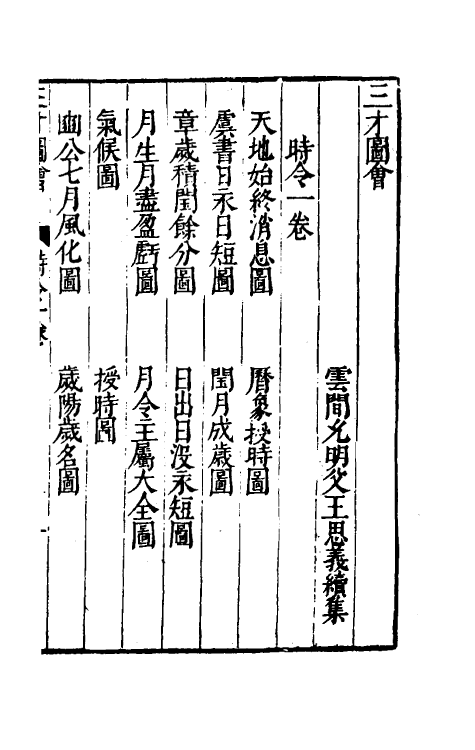 三才圖會
雲間允明父王思義續集
時令一卷
天地始終消息圖 曆象授時圖
虞書日永日短圖 閏月成歲圖
章歲積閏餘分圖 日出日沒永短圖
月生月盡盈虧圖 月令主屬大全圖
氣候圖 授時圖
豳公七月風化圖 歲陽歲名圖
三才圖會 時令一卷 一